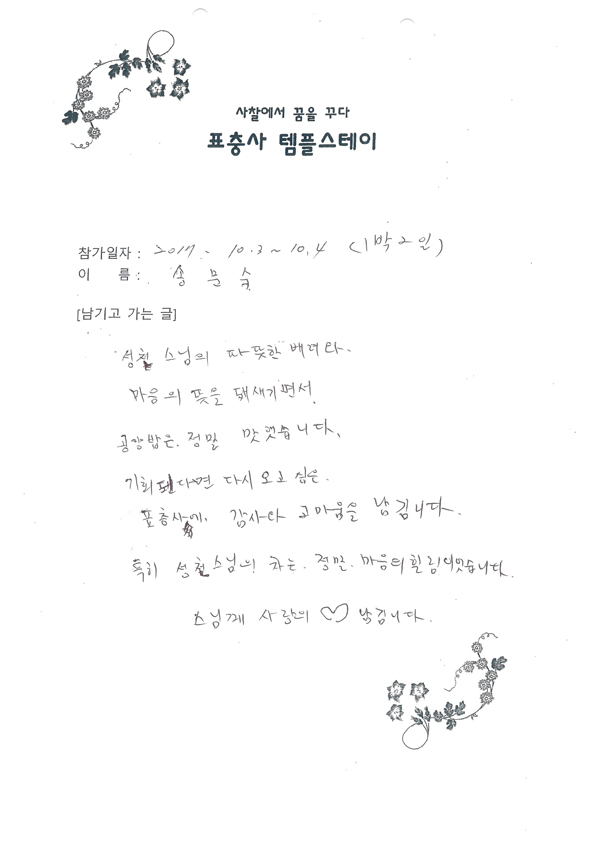 사찰에서 꿈을 꾸다
표충사 템플스테이
참가일자 : 2017 - 10.3 ~ 10.4 (1박2일)
이 름 : 송 문 숙
[남기고 가는 글]
성철 스님의 따뜻한 배려와.
마음의 뜻을 돼새기면서.
공양밥은. 정말 맛있습니다.
기회된다면 다시 오고 싶은.
표충사에. 감사와 고마움을 남김니다.
특히 성철스님의 차는. 정말. 마음의 힐링되었습니다.
스님께 사랑의 ♡ 남김니다.